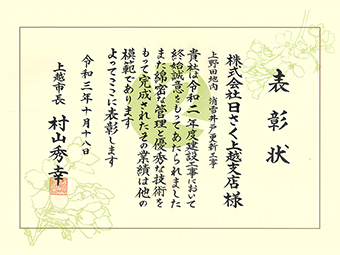 表彰状
株式会社日さく上越支店 様
上野田地内 消雪井戸更新工事
貴社は令和二年度建設工事において
終始誠意をもってあたられました
また綿密な管理と優秀な技術を
もって完成されたその業績は他の
模範であります
よってここに表彰します
令和三年十月十八日
上越市長 村山秀幸